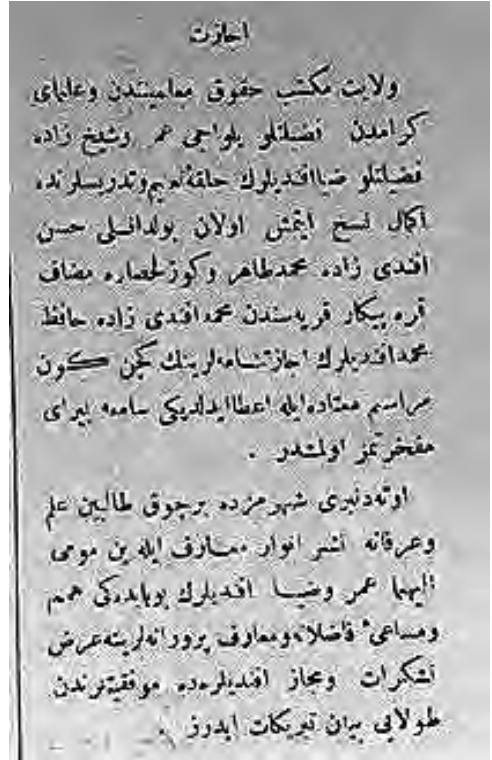 اجازت
ولايت مكتب حقوق معلميندن وعلماى
كرامدن فضيلتلو يلواجى عمر وشيخ زاده
فضيلتلو ضيا افنديلرك حلقهٔ تعليم وتدريسلرنده
اكمال نسخ ايتمش اولان بولدانلى حسن
افندى زاده محمد طاهر وكوزلحصاره مضاف
قره بيكار قريه سندن محمد افندى زاده حافظ
محمد افنديلرك اجازتنامه لرينك كچن كون
مراسم معتاده ايله اعطا ايدلديكى سامعه پيراى
مفخرتمز اولمشدر .
اوته دنبرى شهرمزده برچوق طالبين علم
وعرفانه نشر انوار معارف ايله ين مومى
اليهما عمر وضيا افنديلرك بوبابده كى همم
ومساعىٔ فاضلانه ومعارف پرورانه لرينه عرض
تشكرات ومجاز افنديلرده موفقيتلرندن
طولايى بيان تبريكات ايدرز .